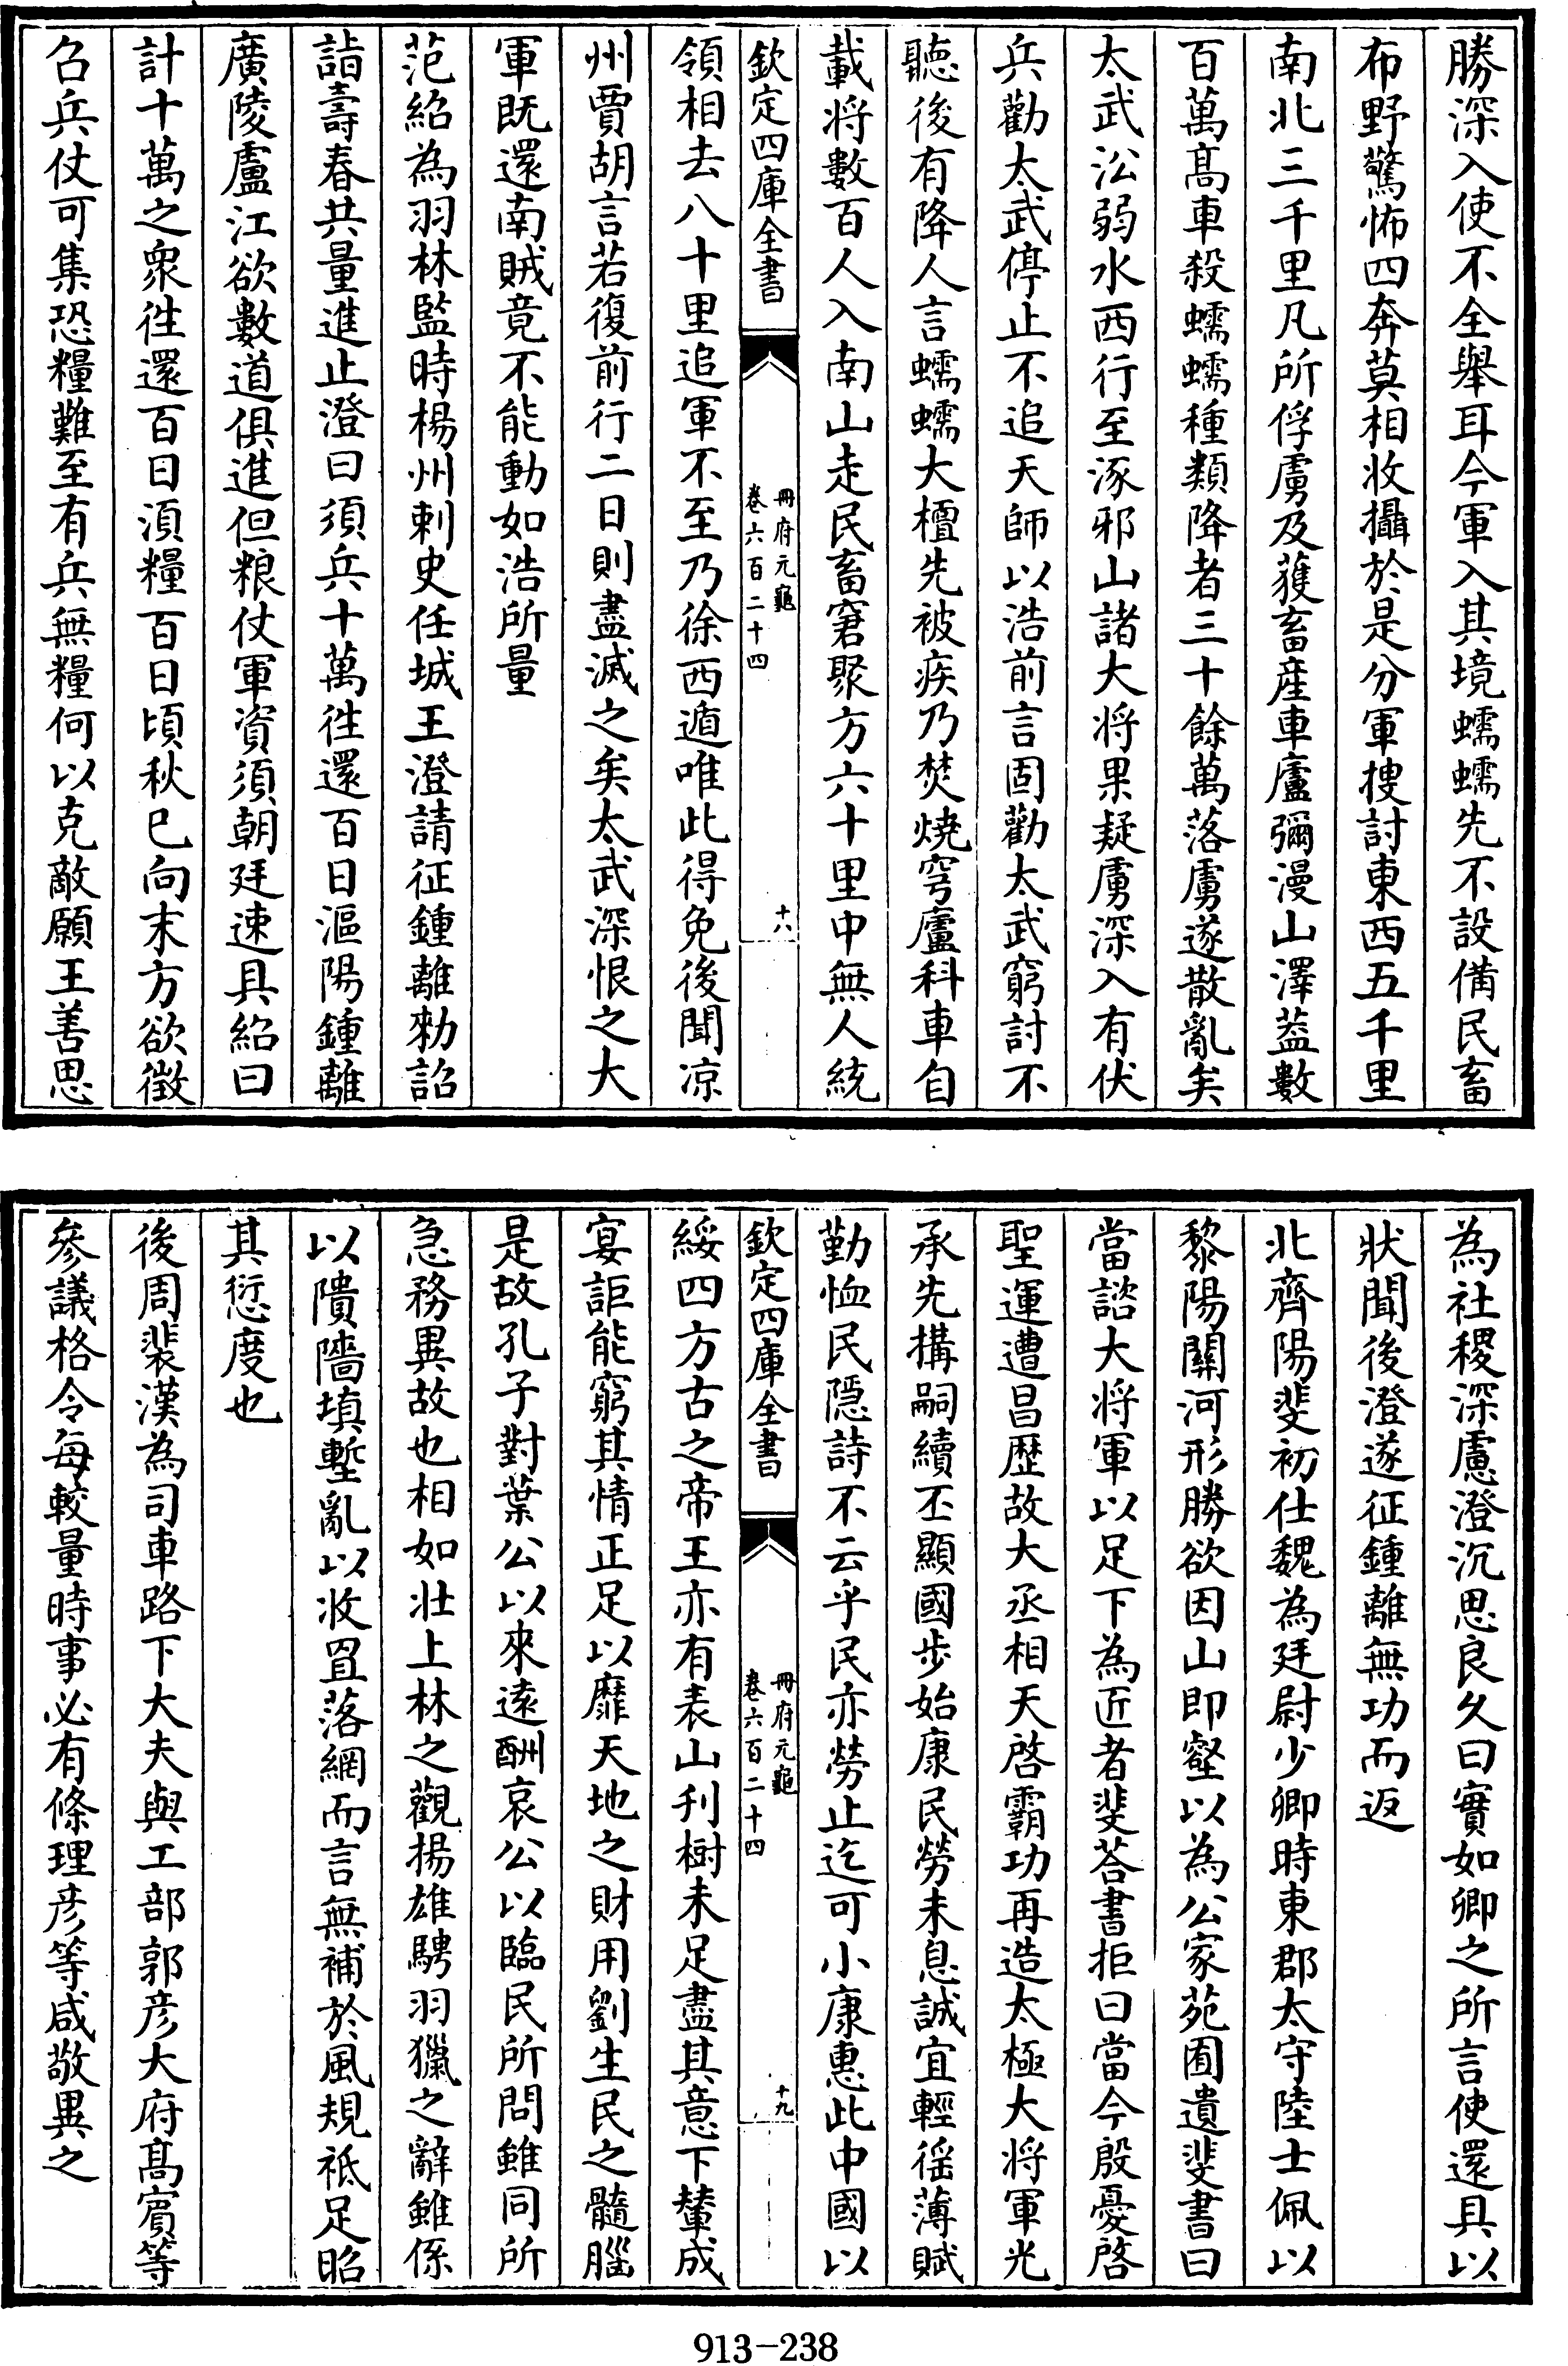 勝深入使不全舉耳今軍入其境蠕蠕先不設備民畜
布野驚怖四奔莫相收攝於是分軍搜討東西五千里
南北三千里凡所俘虜及獲畜産車廬彌漫山澤葢數
百萬髙車殺蠕蠕種類降者三十餘萬落虜遂散亂矣
太武㳂弱水西行至涿邪山諸大將果疑虜深入有伏
兵勸太武停止不追天師以浩前言固勸太武窮討不
聽後有降人言蠕蠕大檀先被疾乃焚燒穹廬科車自
載將數百人入南山走民畜窘聚方六十里中無人統
欽定四庫全書
冊府元龜
卷六百二十四
十八
領相去八十里追軍不至乃徐西遁唯此得免後聞凉
州賈胡言若復前行二日則盡滅之矣太武深恨之大
軍既還南賊竟不能動如浩所量
范紹為羽林監時楊州刺史任城王澄請征鍾離勑詔
詣壽春共量進止澄曰須兵十萬徃還百日渦陽鍾離
廣陵盧江欲數道俱進但粮仗軍資須朝廷速具紹曰
計十萬之衆徃還百日湏糧百日頃秋已向末方欲徵
召兵仗可集恐糧難至有兵無糧何以克敵願王善思
為社稷深慮澄沉思良久曰實如卿之所言使還具以
狀聞後澄遂征鍾離無功而返
北齊陽斐初仕魏為廷尉少卿時東郡太守陸士佩以
黎陽關河形勝欲因山即壑以為公家苑囿遺斐書曰
當諮大將軍以足下為匠者斐荅書拒曰當今殷憂啓
聖運遭昌歴故大丞相天啓霸功再造太極大將軍光
承先搆嗣續丕顯國步始康民勞未息誠宜輕徭薄賦
勤恤民隠詩不云乎民亦勞止迄可小康惠此中國以
欽定四庫全書
冊府元龜
卷六百二十四
十九
綏四方古之帝王亦有表山刋樹未足盡其意下輦成
宴詎能窮其情正足以靡天地之財用劉生民之髓腦
是故孔子對葉公以來逺酬哀公以臨民所問雖同所
急務異故也相如壯上林之觀揚雄騁羽獵之辭雖係
以隤墻填壍亂以收罝落網而言無補於風規祗足昭
其愆度也
後周裴漢為司車路下大夫與工部郭彥大府髙賔等
參議格令每較量時事必有條理彥等咸敬異之
913-238